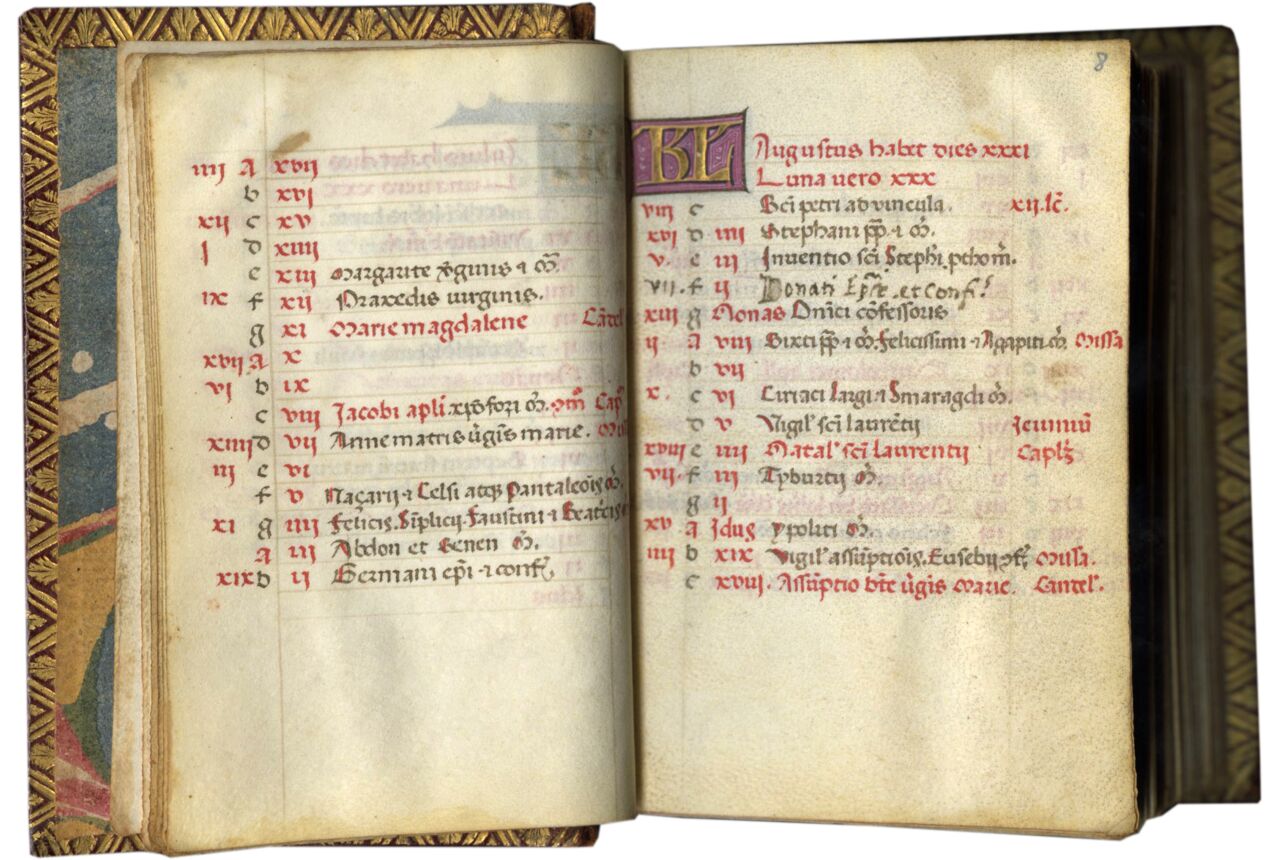 iiii A xvii
b xvi
xii c xv
j d xiiii
e xiii Margarite v̄ginis ⁊ m̄.
ix f xii Praxedis uirginis.
g xi Marie magdalene
xvii A x
vi b ix
c viii Jacobi apl̄i. xp̄ofori m̄.
xiiii d vii Anne matris ūgis marie.
iii e vi
f v Naçarij ⁊ Celsi atqȝ Pantaleōis m̄.
xi g iiii Felicis. Sīplicij. Faustini ⁊ Beatcis
A iii Abdon et Senen m̄.
xix b ii Germani ep̄i ⁊ conf̄.
8
KL Augustus habet dies xxxi
Luna uero xxx
viii c Sc̄i petri ad vincula. xii. lc̄.
xvi d iiii Stephani pp̄ ⁊ m̄.
v. e iii Inuentio sc̄i Steph̄i. pthom̄.
vii. f ii Donati Ep̄i et Conf.
xiii g Nonas Dn̄ici cōfessoris
ii A viii Sixti pp̄ ⁊ m̄. felicissimi ⁊ Agapiti m̄. Missa
b vii
x. c vi Ciriaci largi ⁊ Smaragdi m̄.
d v Vigil' sc̄i laurētij Jeiuniū
xviii e iiii Natal' sc̄i laurentij
vii. f iii Tyburtij m̄.
g ii
xv A Jdus ypoliti m̄.
iiii b xix Vigil' assūptiōis. Eusebij ꝯf. Missa.
c xviii. Assūptio bt̄e ūgis Marie. Cantel'.